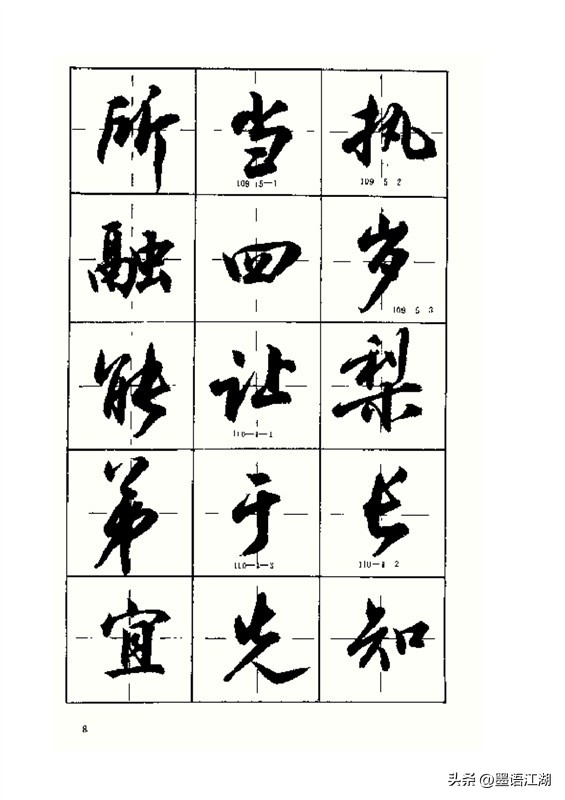 所当执
109 5-1
109 5 2
融四岁
109 5 3
能让梨
110-1-1
弟于长
110-1-3
110-1 2
宜先知
8
头条 @墨语江湖